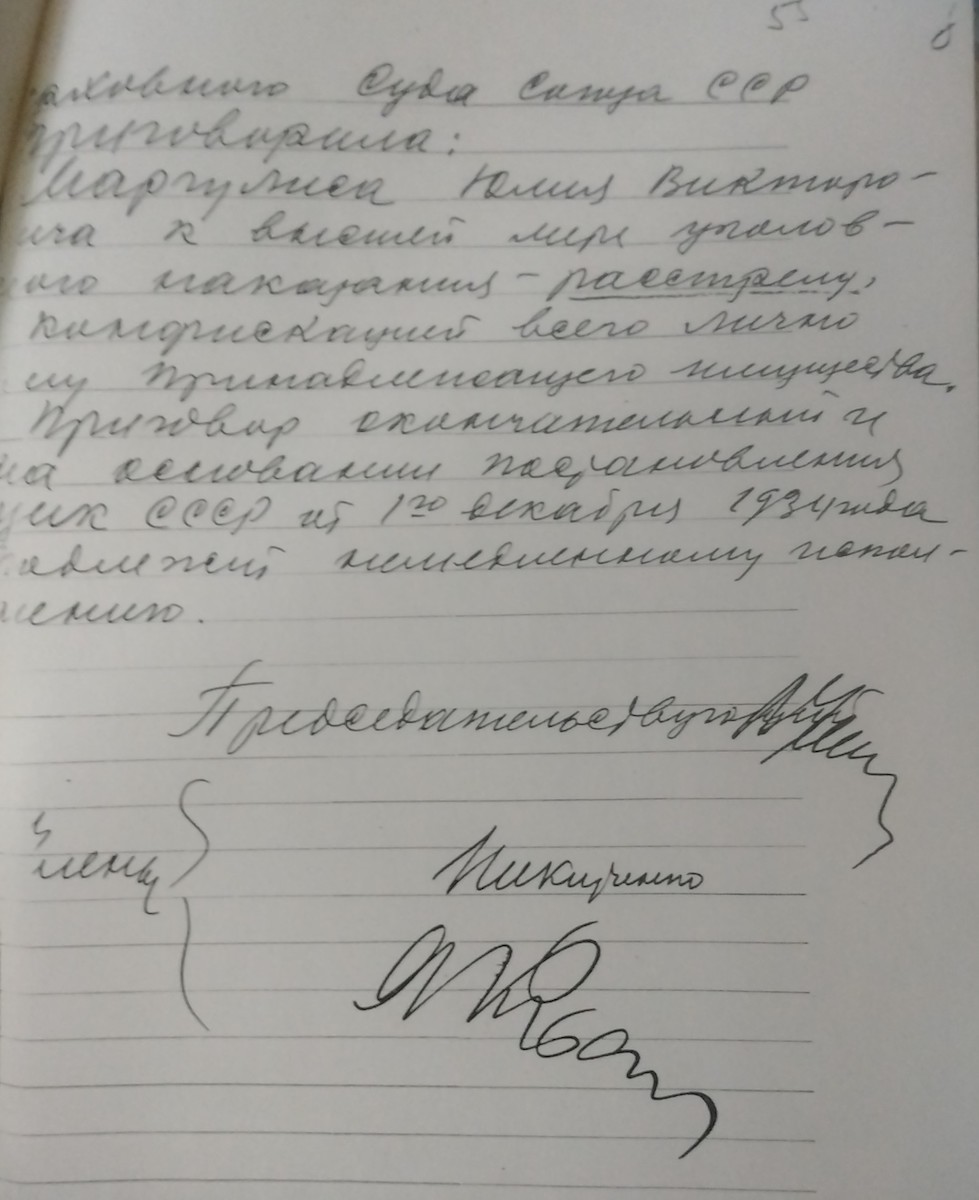 5 6
рховного Суда Союза ССР
приговорила:
Маргулиса Юлия Викторо-
вича к высшей мере уголов-
ного наказания – расстрелу,
конфискацией всего лично
ему принадлежащего имущества.
Приговор окончательный и
на основании постановления
ЦИК СССР от 1го декабря 1934 года
подлежит немедленному испол-
нению.
Председательствующий
Члены
Никитченко